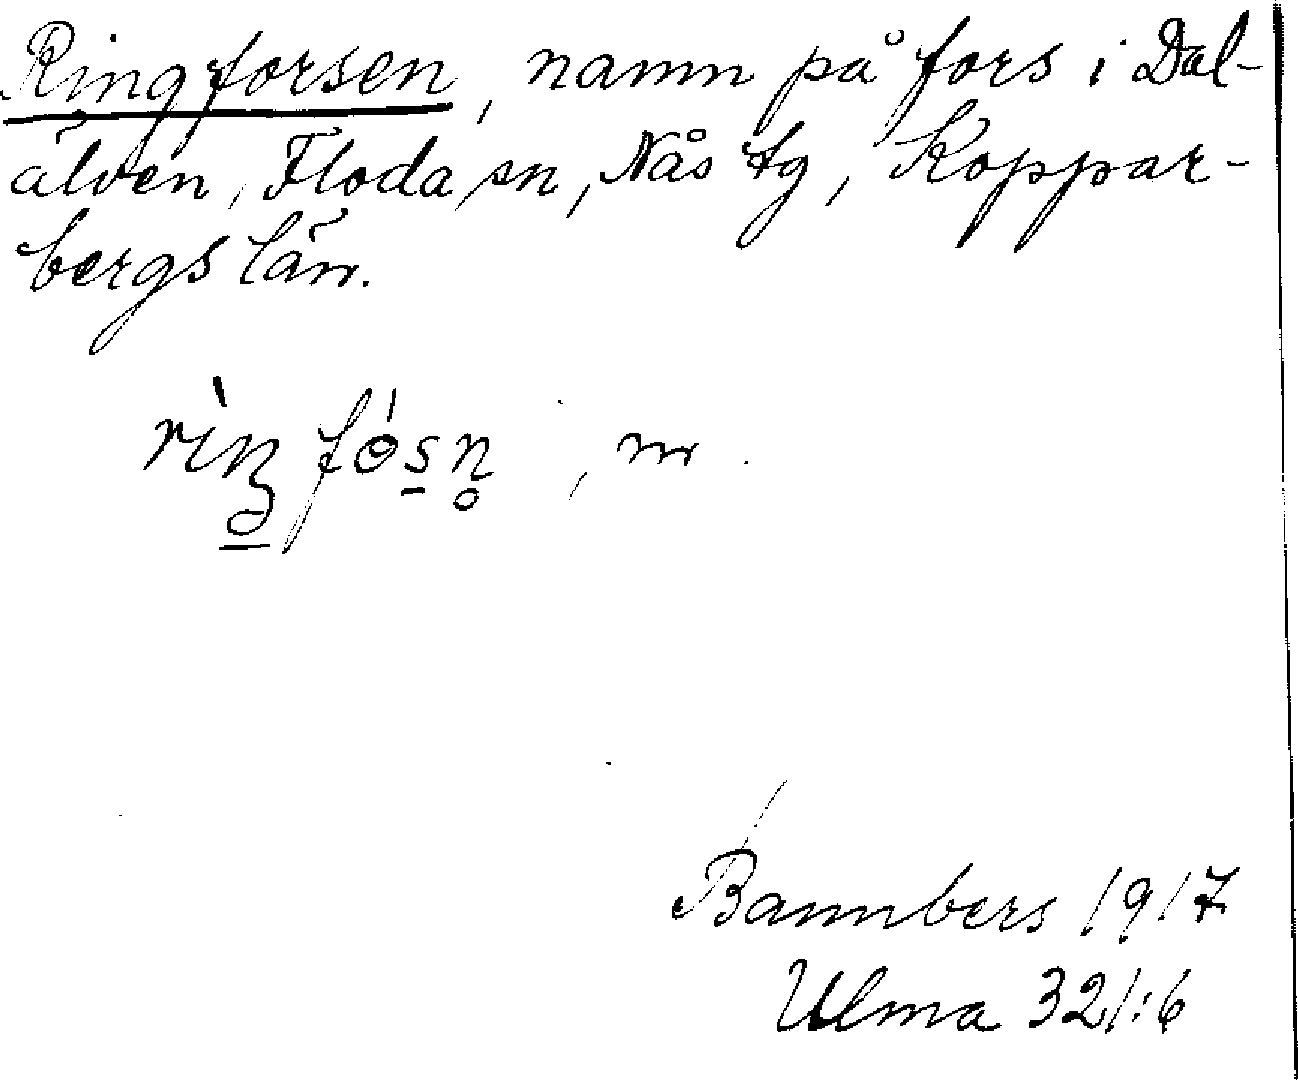 Ringforsen, namn på fors i Dal-
älven, Floda sn, Nås tg, Koppar-
bergs län.
, m.
Bannbers 1917
Ulma 321:6